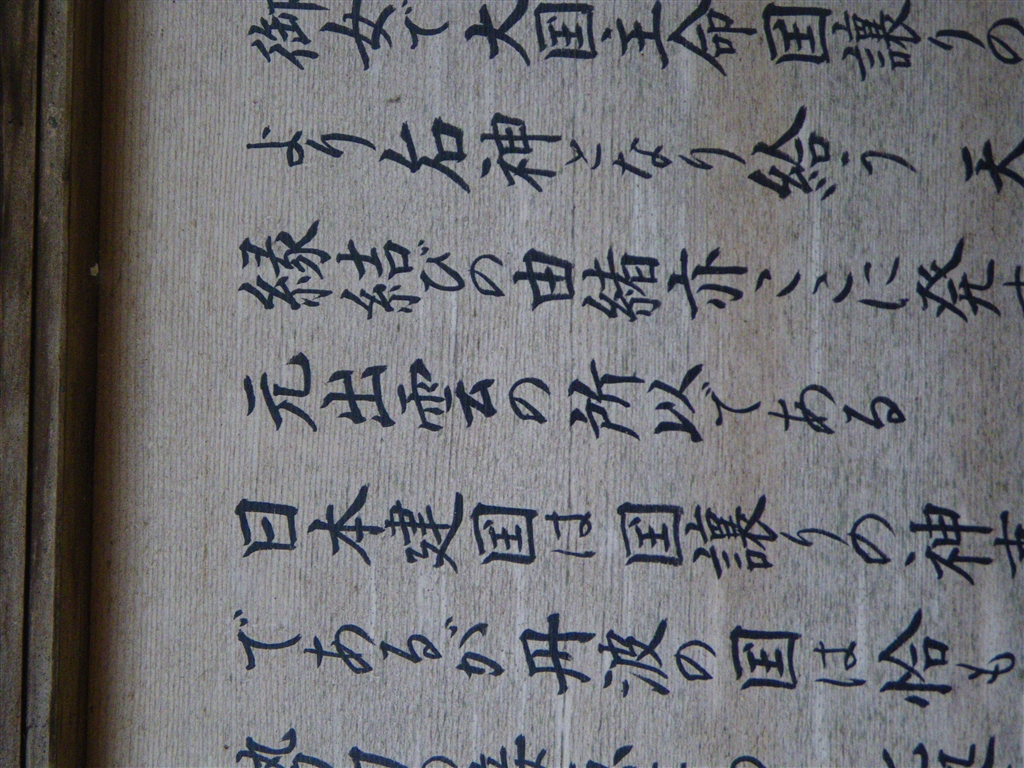 御女で大国主命国譲りの
より名神となり給う 天
縁結びの由緒亦ここに発す
元出雲の所以である
日本建国は国譲りの神
であるが丹波の国は恰も